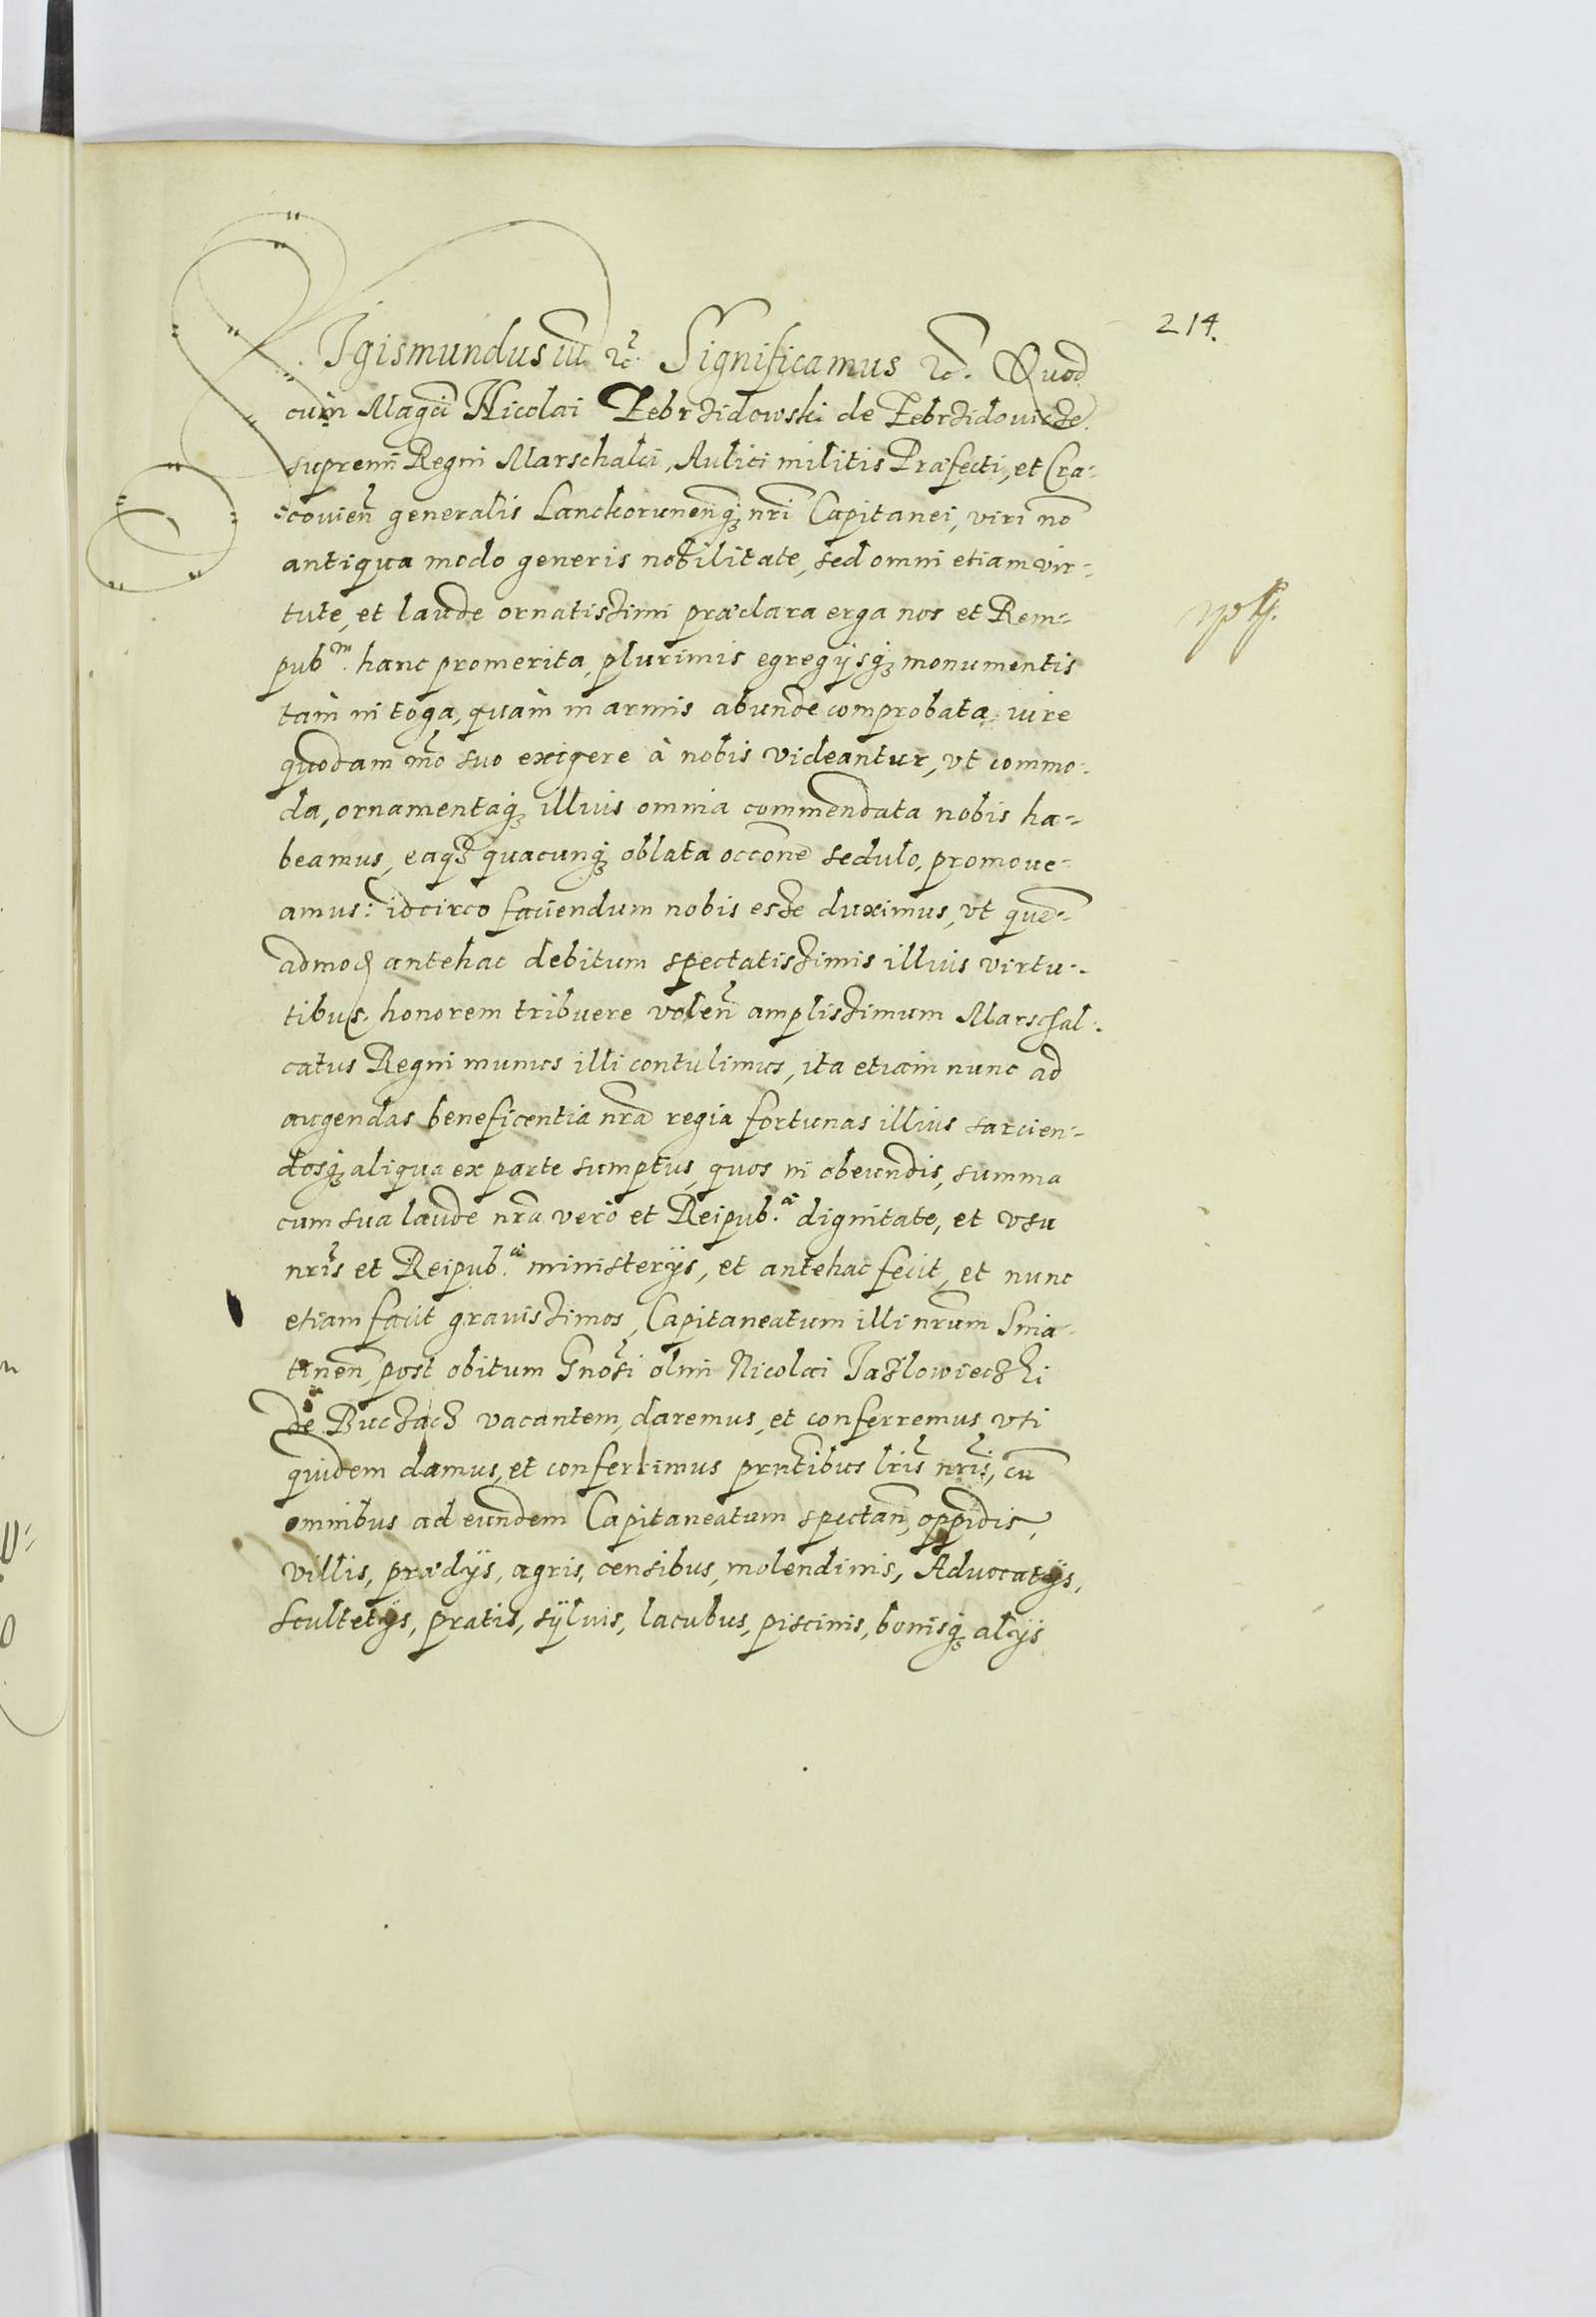 214.
Sigismundus iii ꝛc̃. Significamus ꝛc̃. Quod
cum Magci Nicolai Zebrzidowski de Zebrzidovicze
supremi Regni Marschalci, Aulici militis Præfecti, et Cra-
covieñ generalis Lanckorunenq́ȝ nr̃i Capitanei, viri nõ
antiqua modo generis nobilitate, sed omni etiam vir-
tute, et laude ornatissimi præclara erga nos et Rem-
pubᵐ. hanc promerita, plurimis egregijsq́ȝ monumentis
tam in toga, quàm in armis abunde comprobata, iure
quodam mõ suo exigere à nobis videantur, vt commo-
da, ornamentaq́ȝ illius omnia commendata nobis ha-
beamus, eaq́ȝ quacunq́ȝ oblata occõne sedulo, promove-
amus: idcirco faciendum nobis esse duximus, vt quẽ-
admoꝺ antehac debitum spectatissimis illius virtu-
tibus. honorem tribuere voleñ amplissimum Marschal-
catus Regni munus illi contulimus, ita etiam nunc ad
augendas beneficentia nrã regia fortunas illius sarcien-
dosq́ȝ aliqua ex parte sumptus, quos in obeundis, summa
cum sua laude nrã verò et Reipub.ᵃᵉ dignitate, et vsu
nrı̃s et Reipub.ᵃᵉ ministerijs, et antehac fecit, et nunc
etiam facit gravissimos, Capitaneatum illi nrũm Snia-
tineñ, post obitum Gnõsi olim Nicolai Jazlowieczki
de Buczacz vacantem, daremus, et conferremus, vti
quidem damus, et conferrimus prñtibus lrı̃s nrı̃s, cũ
omnibus ad eundem Capitaneatum spectañ, oppidis,
villis, prædijs, agris, censibus, molendinis, Advocatijs,
Scultetijs, pratis, sÿlvis, lacubus, piscinis, bonisq́ȝ alijs